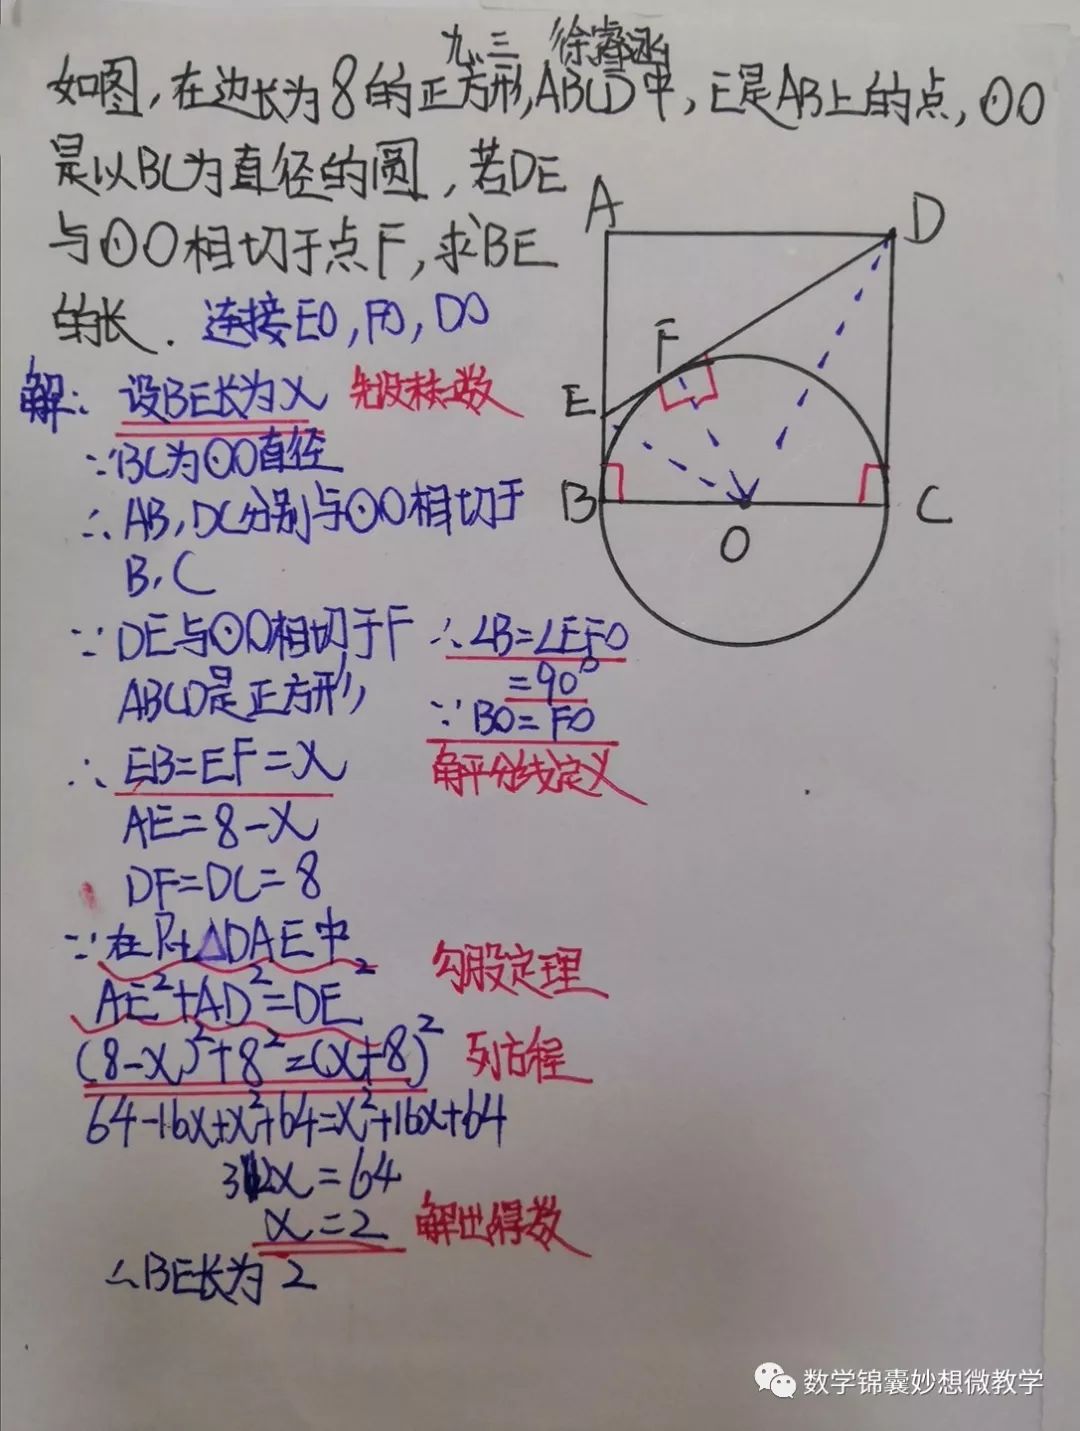 九.三 徐睿涵
如图,在边长为8的正方形,ABCD中,E是AB上的点,⊙O
是以BC为直径的圆,若DE
与⊙O相切于点F,求BE
的长. 连接EO,FO,DO
A
D
F
E
B
C
O
解: 设BE长为x 先设未知数
∵BC为⊙O直径
∴AB,DC分别与⊙O相切于
B,C
∵DE与⊙O相切于F
ABCD是正方形,
∴∠B=∠EFO
=90°
∵BO=FO
角平分线定义
∴EB=EF=x
AE=8-x
DF=DC=8
∵在Rt△DAE中
AE²+AD²=DE² 勾股定理
(8-x)²+8²=(x+8)² 列方程
64-16x+x²+64=x²+16x+64
32x=64
x=2 解出得数
∴BE长为2
数学锦囊妙想微教学